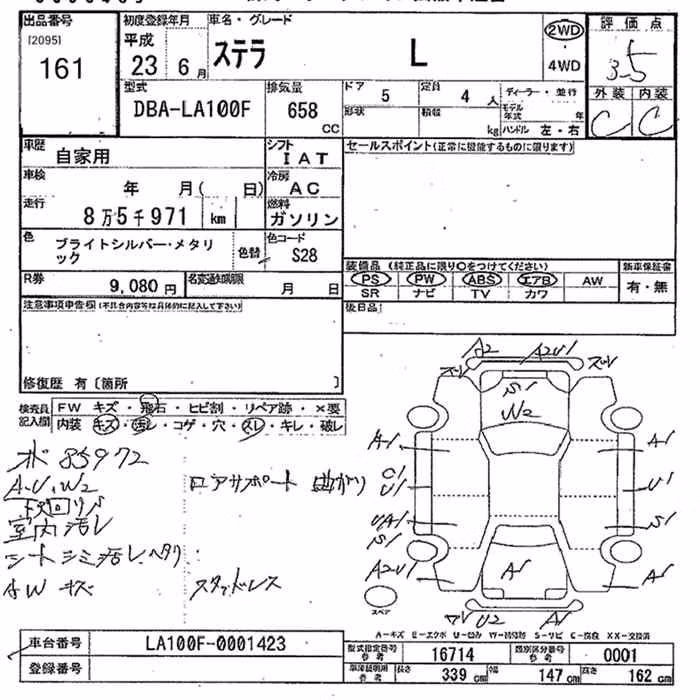 出品番号 初度登録年月 車名・グレード 評価点
[2095] 161
平成 23 6月 ステラ L 2WD 4WD 3.5
外装 内装
C C
型式 DBA-LA100F
排気量 658 CC
ドア 5
定員 4 人
ディーラー・並行
形状 積載 kg
モデル年式 年
ハンドル 左・右
車歴 自家用
シフト IAT
セールスポイント(正常に機能するものに限ります)
車検 年 月( 日)
冷房 AC
走行 8万5千971 km
燃料 ガソリン
色 ブライトシルバー・メタリック
色替
色コード S28
R券 9,080円
名変通知期限 月 日
装備品 (純正品に限り○をつけてください)
新車保証書
PS PW ABS エアB AW
SR ナビ TV カワ
有・無
注意事項申告欄(不具合内容等は具体的に記入して下さい)
後日品
修復歴 有〔箇所 〕
検査員記入欄
FW キズ・飛石・ヒビ割・リペア跡・×要
内装 キズ・汚レ・コゲ・穴・スレ・キレ・破レ
A2 A2U1
S1
W2
A1 A1
U1 U1
UA1 S1
S1
A2U1 A1 A1
U2 A1
スペア
85972
A.U.W2
ロアサポート 曲がり
下回りS
室内汚レ
シートシミ汚レ.ヘタリ
AW キズ
スタッドレス
A-キズ E-エクボ U-凹み W-補修跡 S-サビ C-腐食 XX-交換済
車台番号 LA100F-0001423
登録番号
型式指定番号 参考 16714
類別区分番号 参考 0001
車庫証明用 参考
長さ 339 cm
幅 147 cm
高さ 162 cm